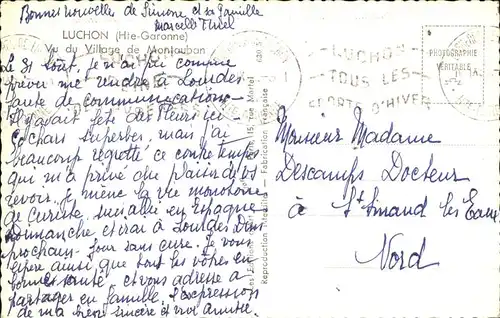 Bonnes nouvelles de Simone et sa famille
Marcelle
LUCHON (Hte-Garonne)
Vu du Village de Montauban
Le 31 Août, je n'ai pu comme
prévu me rendre à Lourdes
faute de communications
Il y avait fête des Fleurs ici
chars superbes, mais j'ai
beaucoup regretté ce contretemps
qui m'a privé du plaisir de vs
revoir. Je mène la vie monotone
de curiste, en Espagne
Dimanche et irai à Lourdes Dim
prochain. Jour sans cure. Je vous
espère ainsi que tous les vôtres en
bonne santé et vous adresse à
partager en famille, l'expression
de ma bien sincère et vive amitié.
LUCHON
TOUS LES
SPORTS D'HIVER
PHOTOGRAPHIE
VÉRITABLE
Reproduction interdite - Fabrication Française
Monsieur Madame
Descamps Docteur
à St Amand les Eaux
Nord